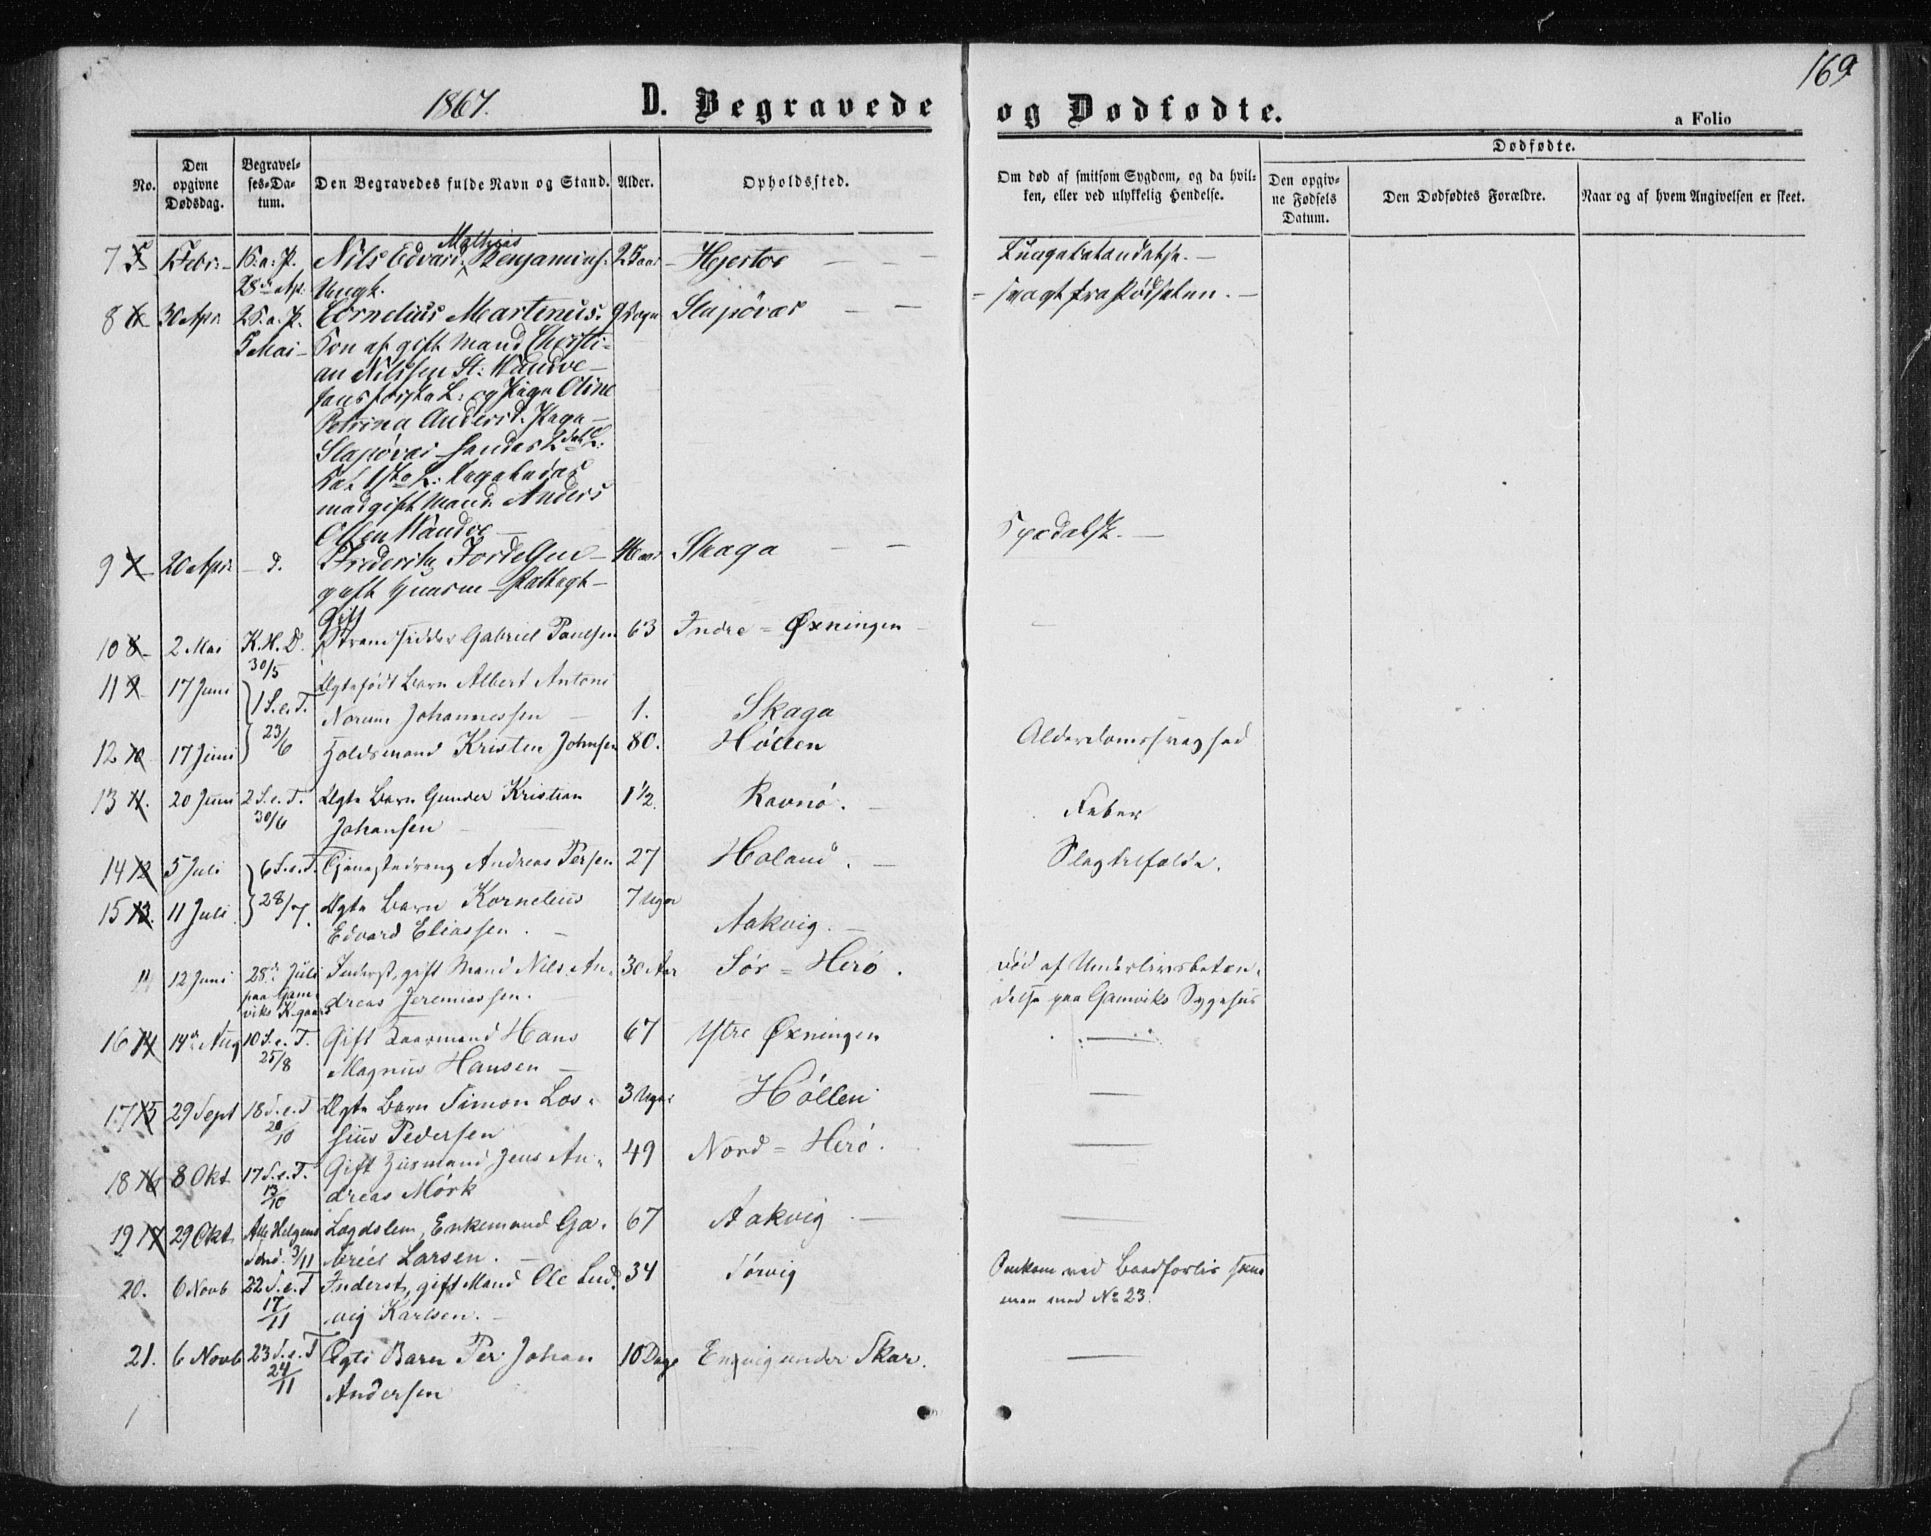 169
1867.
D. Begravede og Dødfødte.
a Folio
No.
Den opgivne Dødsdag.
Begravelses-Datum.
Den Begravedes fulde Navn og Stand.
Alder.
Opholdssted.
Om død af smitsom Sygdom, og da hvilken, eller ved ulykkelig Hendelse.
Dødfødte.
Den opgivne Fødsels Datum.
Den Dødfødtes Forældre.
Naar og af hvem Angivelsen er skeet.
Mathias
7 5 Febr. S. a. P. Nils Edvard Benjamins. Aar Hjertøe
28de Apr. Ungk.
8 6 30 Apr. 2 S. a. P. Cornelius Martinus. 9 Dogn Slapøvær svagt fra Fødselen.
5 Mai Søn af gift Mand Christi-
an Nilssen
og Pige Oline
Petrina Andersd. Skaga
Slapøvær
gift Mand Anders
Olsen Wandve
9 7 20 Apr. d. Friderik Aar Skaga Spedalsk.
gift
Gift
10 8 2 Mai K. H. D. Strandsidder Gabriel Paulsen 63 Indre = Øxningen
30/5
11 9 17 Juni Ægtefødt Barn Albert Antoni
1 S. e. T. Norum Johannessen 1. Skaga
23/6
12 10 17 Juni Holdsmand Kristen Johnsen 80. Høllen Alderdomssvaghed
13 11. 20 Juni 2 S. e. T. Ægte Barn Gunder Kristian 1 1/2. Ravnø. Feber
30/6 Johansen
14 12 5 Juli 6 S. e. T. Tjenestedreng Andreas Persen 27 Haland. Slagtilfælde.
15 13. 11 Juli 28/7. Ægte Barn Kornelius 7 Uger
Edvard Eliassen. Aakvig.
12 Juni 28de Juli Inderst, gift Mand Nils An- 30 Aar Sør = Herø. død af Underlivsbetæn-
paa Gam- dreas Jeremiassen. delse paa Gamviks Sygehus
viks K-gaard
16 14 14de Aug 10 S. e. T. Gift Kaarmand Hans 67 Ytre Øxningen
25/8 Magnus Hansen
17 15 29 Sept 18 S. e. T Ægte Barn Simon Los- 3 Uger Høllen
20/10 sius Pedersen
18 16 8 Okt 17 S. e. T. Gift Husmand Jens An- 49 Nord = Herø.
13/10 dreas Mørk
19 17 29 Okt. Alle Helgens Lægdslem, Enkemand Ga- 67 Aakvig
Sønd. 3/11 briel Larsen.
20. 6 Novb 22 S. e. T Inderst, gift Mand Ole Lud- 34 Sørvig Omkom ved Baadforlis sam-
17/11 vig Karlsen. men med No 23.
21. 6 Novb 23 S. e. T Ægte Barn Per Johan 10 Dage Engvig under Skar.
24/11 Andersen